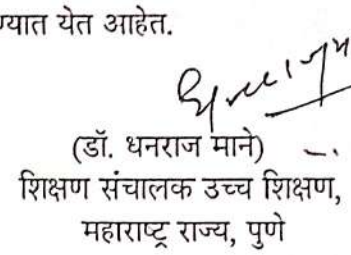 ण्यात येत आहेत.
(डॉ. धनराज माने)
शिक्षण संचालक उच्च शिक्षण,
महाराष्ट्र राज्य, पुणे